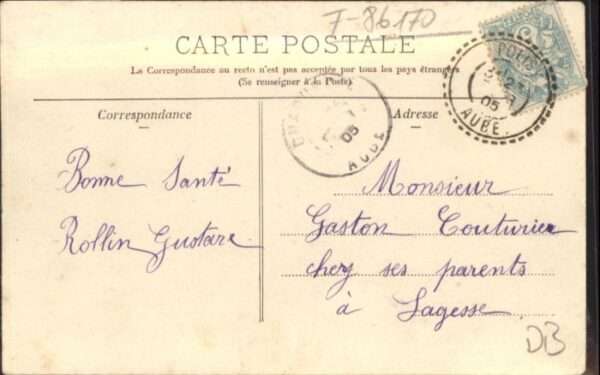 F-86170
CARTE POSTALE
La Correspondance au recto n'est pas acceptée par tous les pays étrangers
(Se renseigner à la Poste)
Correspondance
Adresse
05
AUBE
05
AUBE
Bonne Santé
Rollin Gustave.
Monsieur
Gaston Couturier
chez ses parents
à Lagesse.
DB